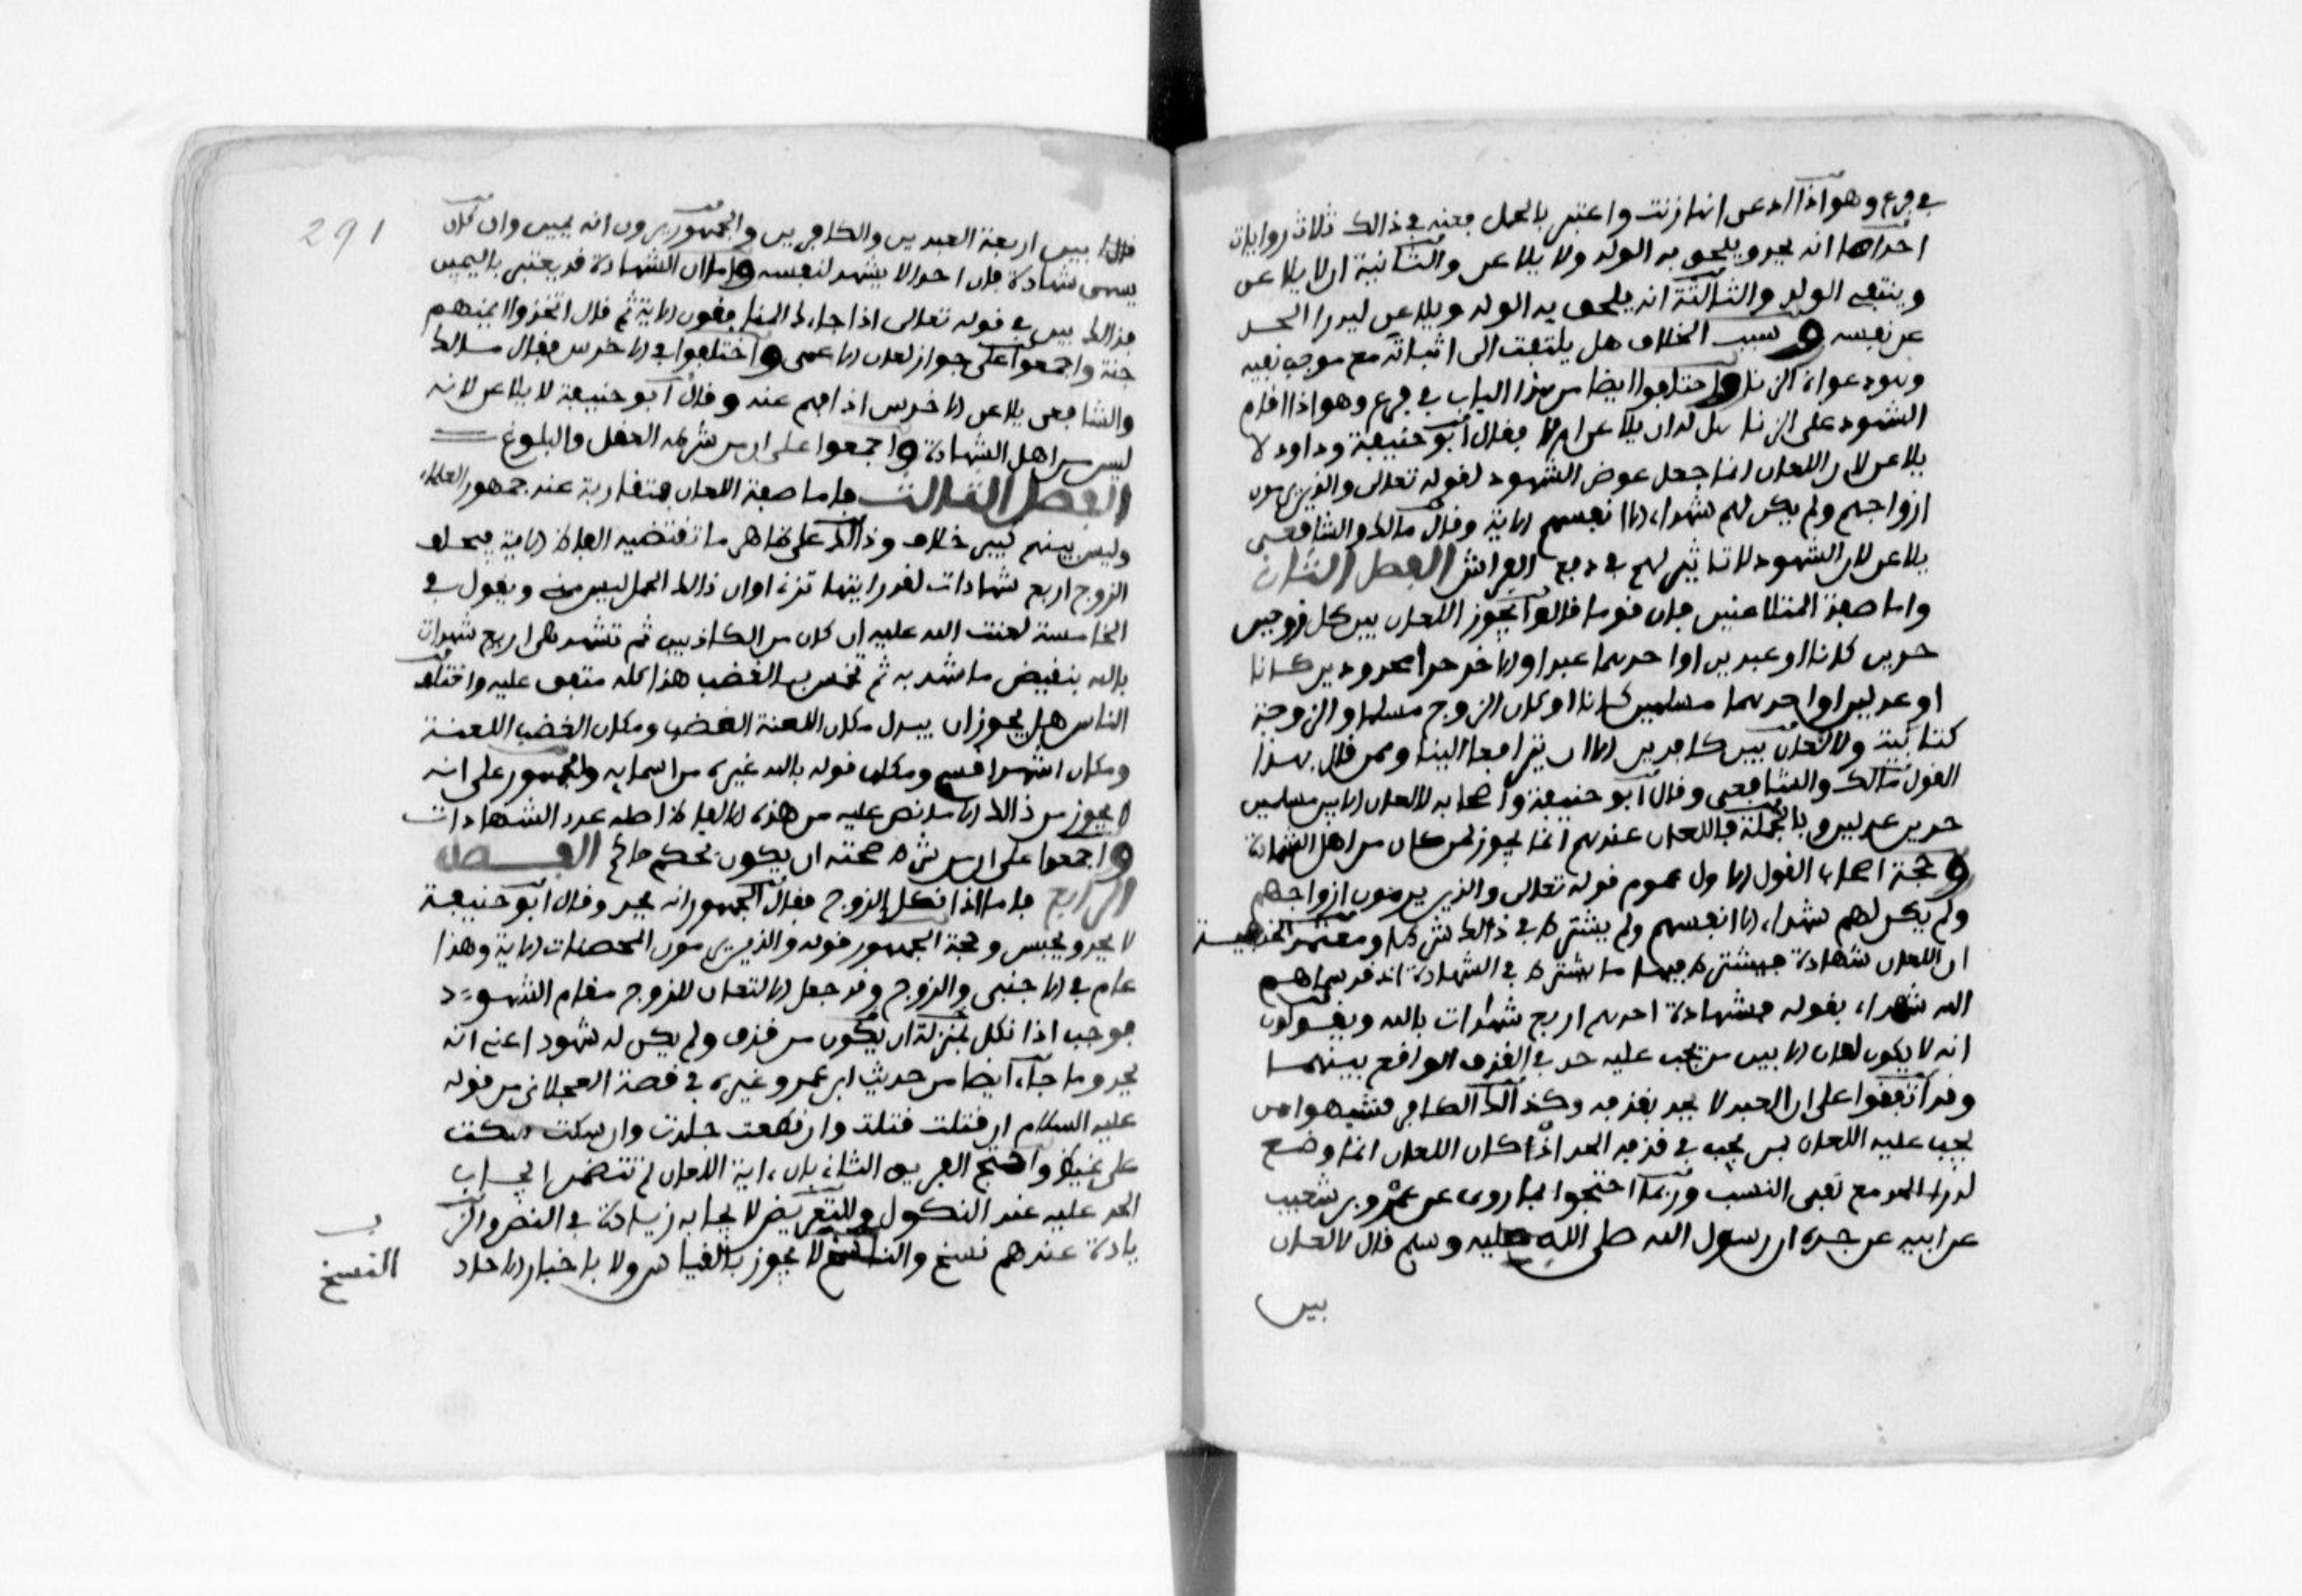 في فرع وهو اذا ادعى انها زنت واعترف بالحمل فعنه في ذالك ثلاث روايات
احداها انه يحد ويلحق به الولد ولا يلاعن والثانية انه يلاعن
وينتفي الولد والثالثة انه يلحق به الولد ويلاعن ليدرا الحد
عن نفسه وسبب الخلاف هل يلتفت الى اثباته مع موجب نفيه
وهو دعواه الزنا واختلفوا ايضا من هذا الباب في فرع وهو اذا اقام
الشهود على الزنا هل له ان يلاعن ام لا فقال ابو حنيفة وداود لا
يلاعن لان اللعان انما جعل عوض الشهود لقوله تعالى والذين يرمون
ازواجهم ولم يكن لهم شهداء الا انفسهم الاية وقال مالك والشافعي
يلاعن لان الشهود لا تاثير لهم في دفع الفراش الفصل الثاني
واما صفة المتلاعنين فان قوما قالوا يجوز اللعان بين كل زوجين
حرين كانا او عبدين او احدهما عبد او الاخر حر محدودين كانا
او عدلين او احدهما مسلمين كانا او كان الزوج مسلما والزوجة
كتابية ولا لعان بين كافرين الا ان يترافعا الينا وممن قال بهذا
القول مالك والشافعي وقال ابو حنيفة واصحابه لا لعان الا بين مسلمين
حرين عدلين وبالجملة فاللعان عندهم انما يجوز لمن كان من اهل الشهادة
وحجة اصحاب القول الاول عموم قوله تعالى والذين يرمون ازواجهم
ولم يكن لهم شهداء الا انفسهم ولم يشترط في ذالك شرطا ومعتمد الحنفية
ان اللعان شهادة فيشترط فيها ما يشترط في الشهادة اذ قد سماهم
الله شهداء بقوله فشهادة احدهم اربع شهادات بالله ويقولون
انه لا يكون لعان الا بين من يجب عليه حد في القذف الواقع بينهما
وقد اتفقوا على ان العبد لا يحد بقذفه وكذالك الكافر فشبهوا من
يجب عليه اللعان بمن يجب في قذفه الحد اذا كان اللعان انما وضع
لدرء الحد مع نفي النسب وربما احتجوا بما روي عن عمرو بن شعيب
عن ابيه عن جده ان رسول الله صلى الله عليه وسلم قال لا لعان
بين
قال بين اربعة العبدين والكافرين والجمهور يرون انه يمين وان كان
يسمى شهادة فان احدا لا يشهد لنفسه واما ان الشهادة قد يعني بها اليمين
فذالك بين في قوله تعالى اذا جاءك المنافقون الاية ثم قال اتخذوا ايمنهم
جنة واجمعوا على جواز لعان الاعمى واختلفوا في الاخرس فقال مالك
والشافعي يلاعن الاخرس اذا فهم عنه وقال ابو حنيفة لا يلاعن لانه
ليس من اهل الشهادة واجمعوا على ان من شرطه العقل والبلوغ
الفصل الثالث فاما صفة اللعان فمتقاربة عند جمهور العلماء
وليس بينهم كبير خلاف وذالك على ظاهر ما تقتضيه الفاظ الاية فيحلف
الزوج اربع شهادات لقد رايتها تزني وان ذالك الحمل ليس مني ويقول في
الخامسة لعنت الله عليه ان كان من الكاذبين ثم تشهد هي اربع شهدات
بالله بنقيض ما شهد به ثم تخمس بالغضب هذا كله متفق عليه واختلف
الناس هل يجوز ان يبدل مكان اللعنة الغضب ومكان الغضب اللعنة
ومكان اشهد اقسم ومكان قوله بالله غيره من اسمايه والجمهور على انه
لا يجوز من ذالك الا ما نص عليه من هذه الالفاظ اصله عدد الشهادات
واجمعوا على ان من شرط صحته ان يكون بحكم حاكم الفصل
الرابع فاما اذا نكل الزوج فقال الجمهور انه يحد وقال ابو حنيفة
لا يحد ويحبس وحجة الجمهور قوله والذين يرمون المحصنات الاية وهذا
عام في الاجنبي والزوج وقد جعل الالتعان للزوج مقام الشهود
فوجب اذا نكل بمنزلة ان يكون من قذف ولم يكن له شهود اعني انه
يحد وما جاء ايضا من حديث ابن عمر وغيره في قصة العجلاني من قوله
عليه السلام ان قتلت قتلت وان نطقت جلدت وان سكت سكت
على غيظ واحتج الفريق الثاني بان ءاية اللعان لم تتضمن ايجاب
الحد عليه عند النكول والتعريض لايجابه زيادة في النص والز
يادة عندهم نسخ والنسخ لا يجوز بالقياس ولا باخبار الاحاد
النسخ
291